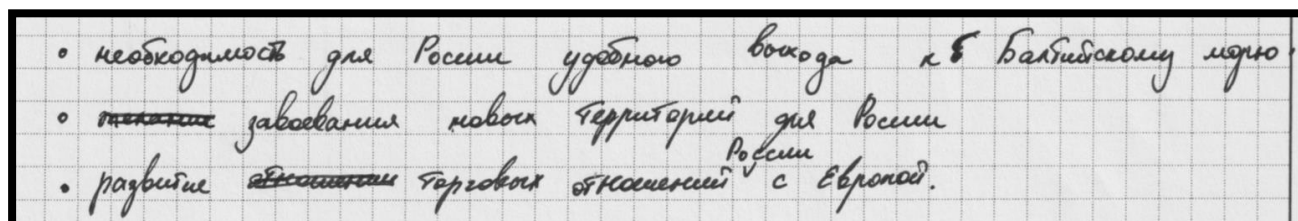 • необходимость для России удобного выхода к Балтийскому морю.
• завоевания новых территорий для России
• развитие торговых отношений России с Европой.